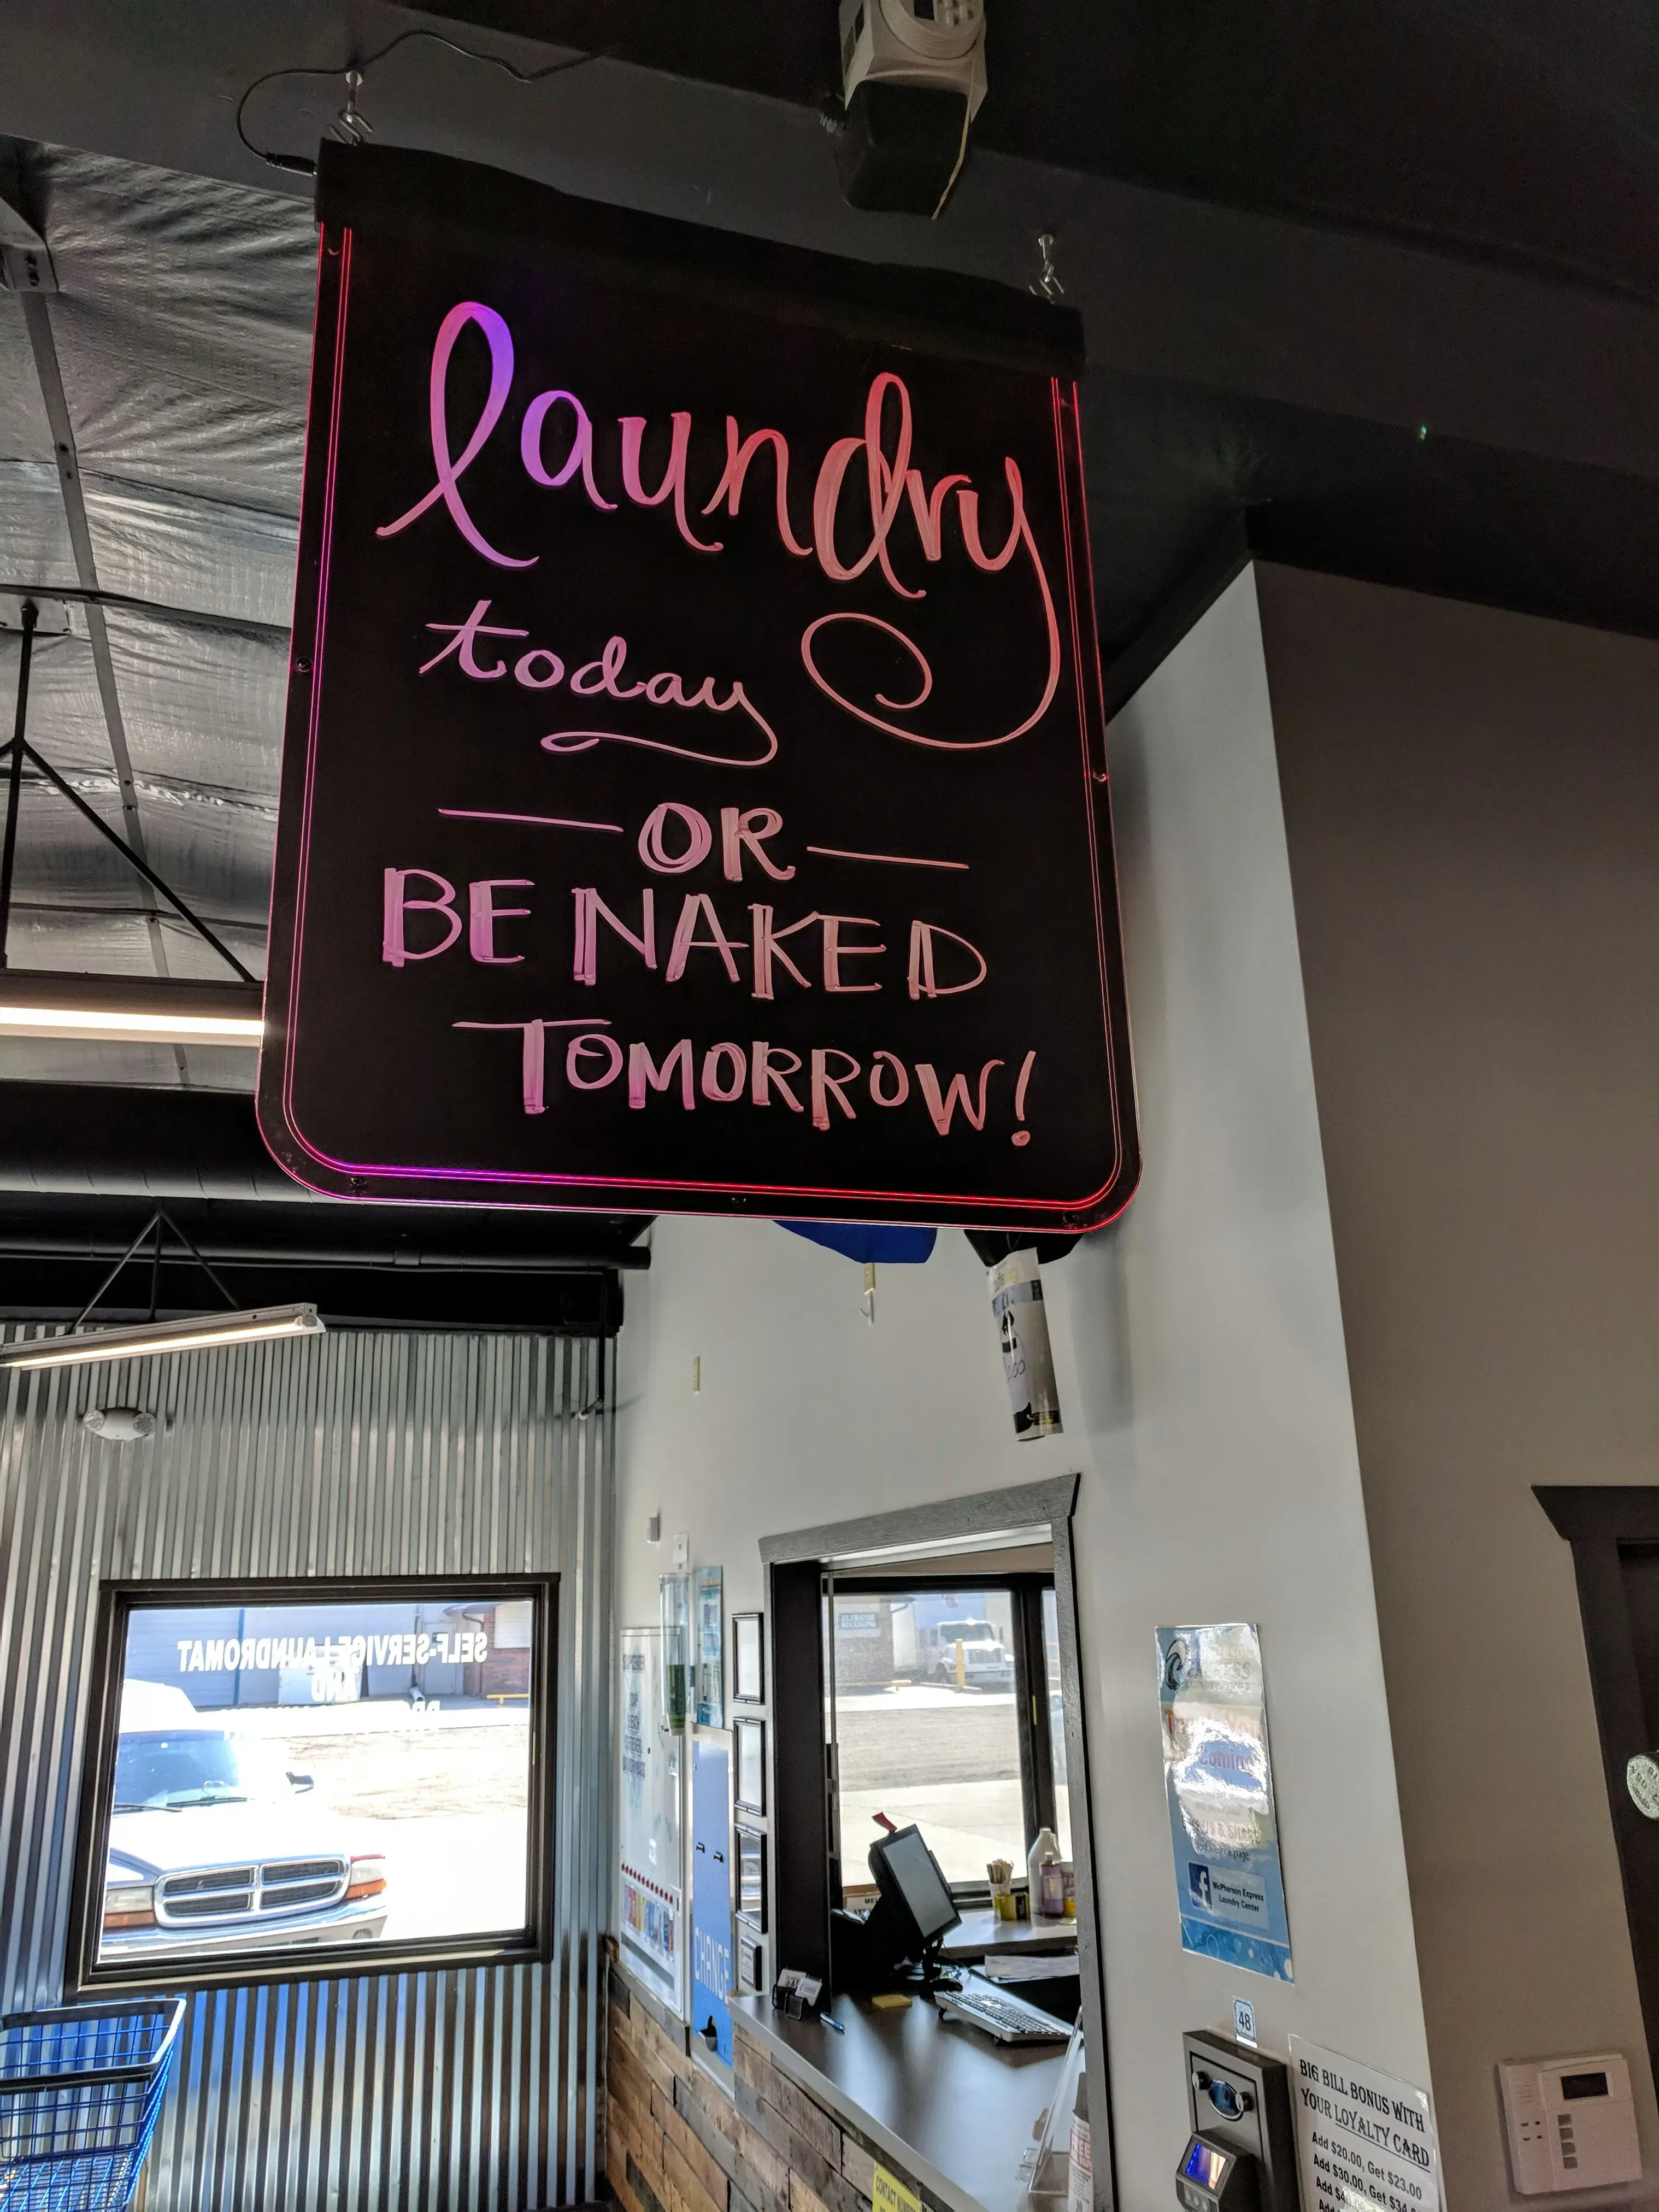 laundry
today
OR
BE NAKED
TOMORROW!
SELF-SERVICE LAUNDROMAT
AND
CHANGE
McPherson Express
Laundry Center
48
BIG BILL BONUS WITH
YOUR LOYALTY CARD
Add $20.00, Get $23.00
Add $30.00, Get $34